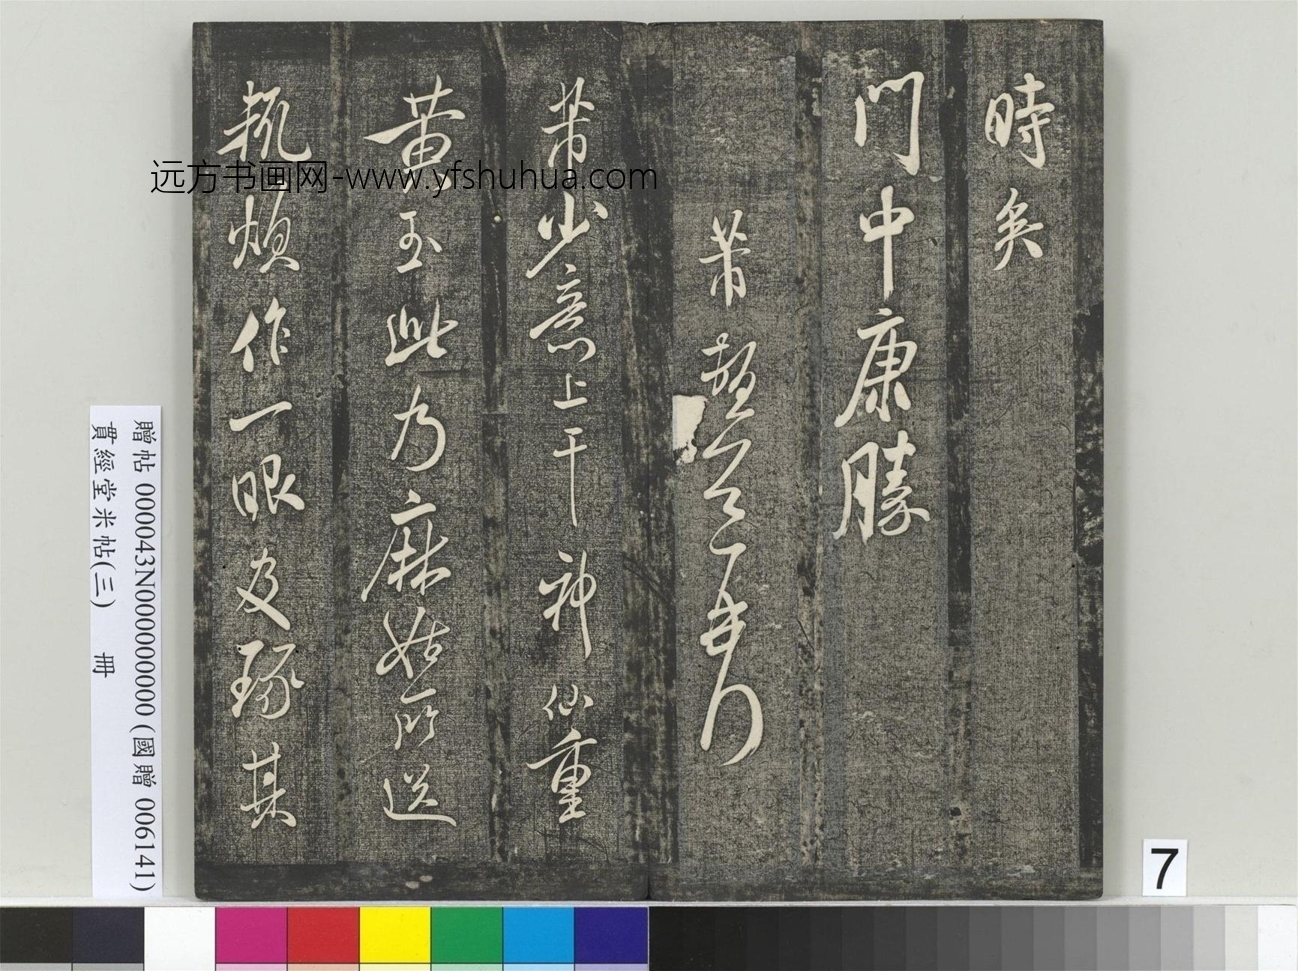 時矣
門中康勝
芾
芾少意上干神仙重
黄玉此乃麻姑所送
輒煩作一眼及琢其
远方书画网-www.yfshuhua.com
贈帖 000043N000000000 (國贈 006141)
貫經堂米帖(三) 冊
7